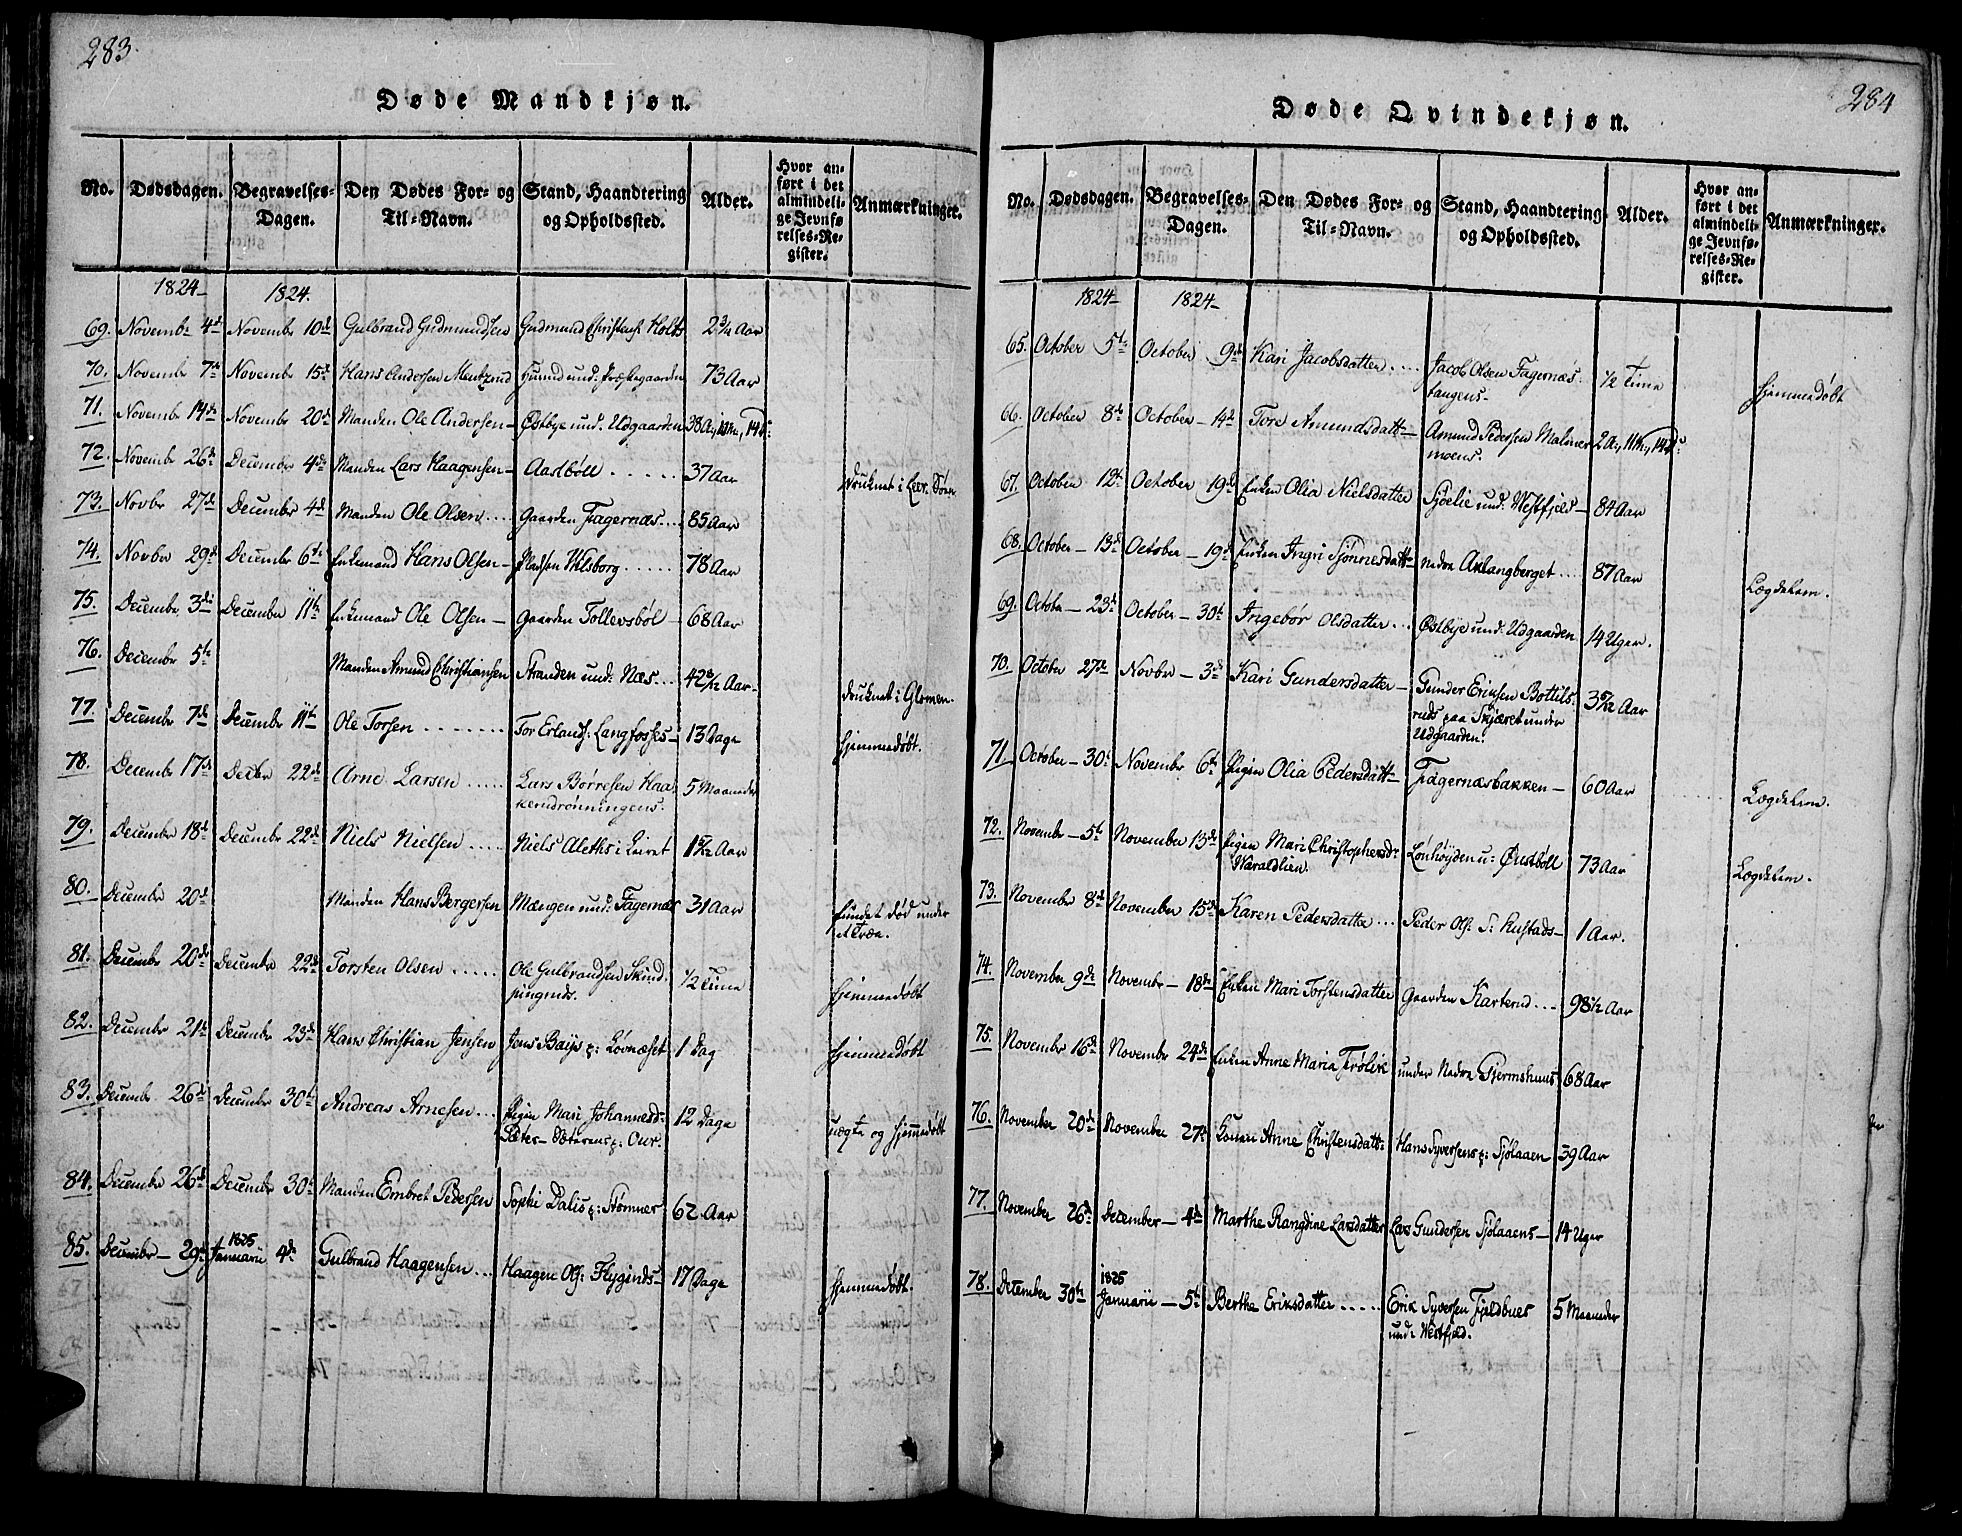 283.
Døde Mandkjøn.
No. Dødsdagen. Begravelses-Dagen. Den Dødes For- og Til-Navn. Stand, Haandtering og Opholdssted. Alder. Hvor anført i det almindelige Jevnførelses-Register. Anmærkninger.
1824 1824.
69. Novembr 4de Novembr 10de Gulbrand Gudmundsen Gudmund Christens. Holts 2 3/4 Aar
70. Novembr 7de Novembr 15de Hans Andersen und: Præstegaarden 73 Aar
71. Novembr 14de Novembr 20de Manden Ole Andersen Østbye und: Udgaarden 38 A, 10 M, 14 D:
72. Novembr 26de Decembr 4de Manden Lars Haagensen Aasbøll 37 Aar druknet i Søen
73. Novbr 27de Decembr 4de Manden Ole Olsen Gaarden Fagernæs 85 Aar
74. Novbr 29de Decembr 6te Enkemand Hans Olsen Pladsen Wilsborg 78 Aar
75. Decembr 3die December 11te Enkemand Ole Olsen Gaarden Tollersbøl 68 Aar
76. Decembr 5te Manden Amund Christiansen Stranden und: Næs 42 8/12 Aar druknet i Glomen.
77. Decembr 7de Decembr 11te Ole Torsen Tor Erlands: Langfosses 13 Dage hjemmedøbt.
78. Decembr 17de Decbr 22de Arne Larsen Lars Børresen Haa-
kendrønningens. 5 Maaneder
79. Decembr 18de Decembr 22de Niels Nielsen Niels Aleths i Leiret 1 5/12 Aar
80. Decembr 20de Manden Hans Bergersen Mængen und: Fagernæs 31 Aar fundet død under
et Træe.
81. Decembr 20de Decembr 22de Torsten Olsen Ole Gulbrandsen Skind-
pungruds. 1/2 Time hjemmedøbt
82. Decembr 21de Decembr 23de Hans Christian Jensen Jens p: Løvnæset 1 Dag hjemmedøbt
83. Decembr 26de Decembr 30te Andreas Arnesen Pigen Mari Johannesd:
Sæter- p: Our. 12 Dage uægte og hjemmedøbt
84. Decembr 26de Decembr 30te Manden Embret Pedersen Sophi Dalis p: Stømner 62 Aar
1825
85. Decembr 29de Januarii 4de Gulbrand Haagensen Haagen Ols: Flyginds 17 Dage hjemmedøbt.
284
Døde Qvindekjøn.
No. Dødsdagen. Begravelses-Dagen. Den Dødes For- og Til-Navn. Stand, Haandtering og Opholdssted. Alder. Hvor anført i det almindelige Jevnførelses-Register. Anmærkninger.
1824 1824
65. October 5te October 9de Kari Jacobsdatter Jacob Olsen Fagernæs-
tangens 1/2 Time hjemmedøbt
66. October 8de October 14de Tore Amundsdatt Amund Pedersen Malmer-
moens. 2 A, 11 M, 14 D:
67. October 12te October 19de Enken Olia Nielsdatter Sjøelie und: Westfjeld 84 Aar
68. October 13de October 19de Enken Ingri Sjønnesdatt nedre Aklangberget 87 Aar Lægdelem.
69. October 23de October 30te Ingebør Olsdatter Østbye und: Udgaarden 14 Uger.
70. October 27de Novbr 3die Kari Gundersdatter Gunder Eriksen Bottils-
ruds paa Skjæret under
Udgaarden. 3 5/12 Aar
71. October 30te November 6te Pigen Olia Pedersdatt Fagernæsbakken 60 Aar Lægdelem.
72. November 5te November 13de Pigen Mari Christophersd:
Haraldlien. Lønhøyden u: Øudbøll 73 Aar Lægdelem.
73. November 8de November 15de Karen Pedersdatter Peder Ols: S: Rustads 1 Aar.
74. November 9de November 18de Enken Mari Torstensdatter Gaarden Karterud 98 1/2 Aar
75. November 16de November 24de Enken Anne Maria Frølik under Nedre Gjermshuus 68 Aar
76. November 20de November 27de Konen Anne Christensdatt: Hans Syversens p: Sjølaaen 39 Aar
77. November 26de December 4de Marthe Rangdine Larsdatter Lars Gundersen Sjølaaens 14 Uger
1825
78. December 30te Januarii 5te Berthe Eriksdatter Erik Syversen Fjeldbues
und: Westfjeld. 5 Maaneder